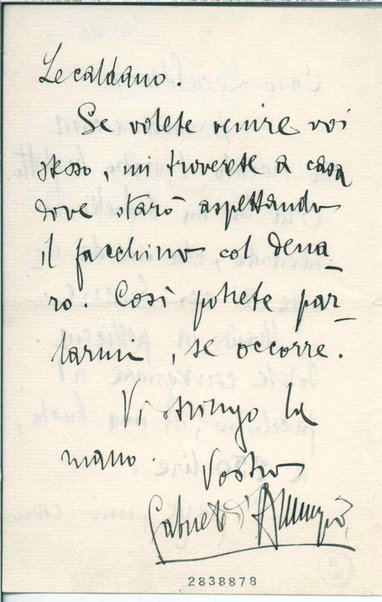 Lecaldano.
Se volete venire voi
stesso, mi troverete a casa
dove starò aspettando
il facchino col dena-
ro. Così potrete par-
larmi, se occorre.
Vi stringo la
mano.
Vostro
Gabriele d'Annunzio
2838878